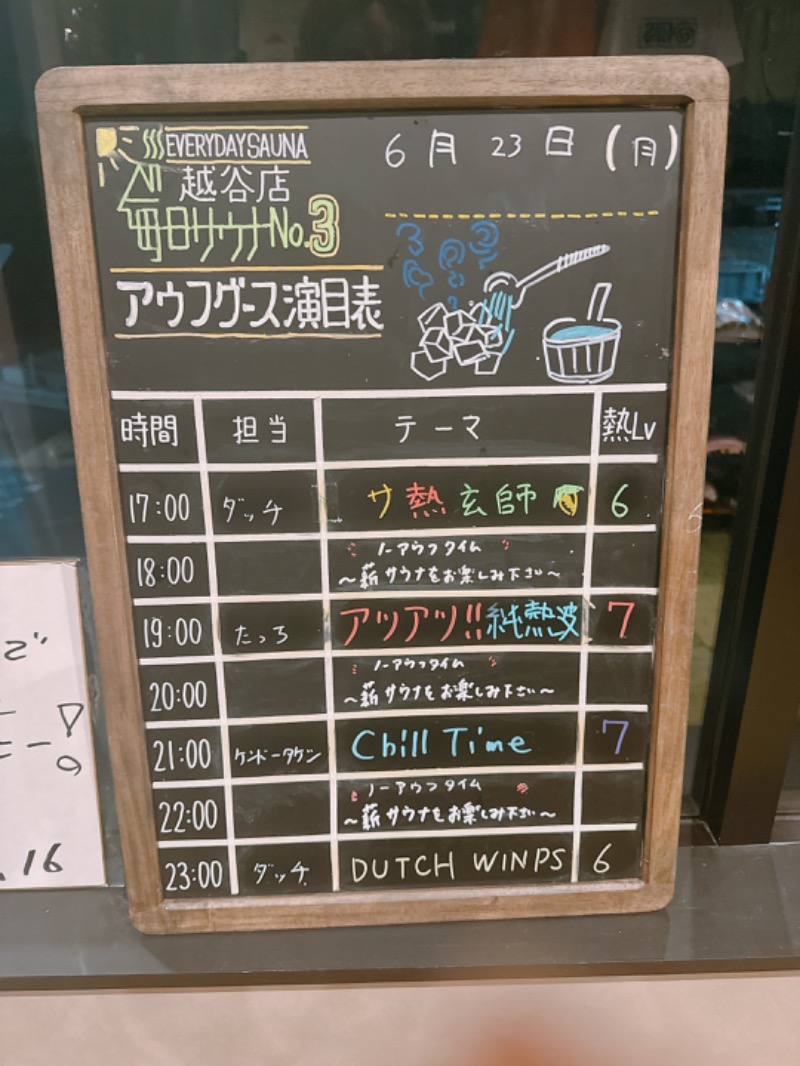 EVERYDAY SAUNA
越谷店
毎日サウナNo.3
6月23日(月)
アウフグース演目表
時間 担当 テーマ 熱Lv
17:00 ダッチ サ熱玄師 6
18:00 ノーアウフタイム
～薪サウナをお楽しみ下さい～
19:00 たっろ アツアツ!!純熱波 7
20:00 ノーアウフタイム
～薪サウナをお楽しみ下さい～
21:00 ケンドータケシ Chill Time 7
22:00 ノーアウフタイム
～薪サウナをお楽しみ下さい～
23:00 ダッチ DUTCH WINPS 6
.16